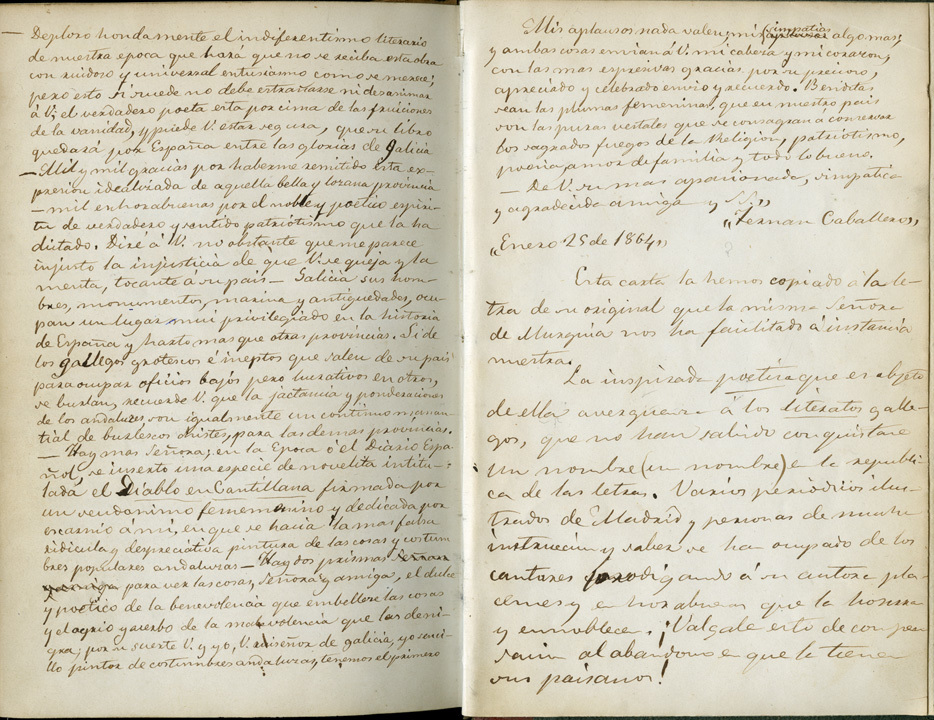 — Deploro hondamente el indiferentismo literario
de nuestra epoca que hará que no se reciba esta obra
con ruidoso y universal entusiasmo como se merece;
pero esto si puede no debe extrañarse ni desanimar
á V; el verdadero poeta esta por cima de las fruiciones
de la vanidad, y puede V. estar segura, que su libro
quedará por España entre las glorias de Galicia
— Mil y mil gracias por haberme remitido esta es-
presion idealizada de aquella bella y lozana provincia
— mil enhorabuenas por el noble y poetico espiri-
tu de verdadero y sentido patriótismo que la ha
dictado. Diré á V. no obstante que me parece
injusto la injusticia de que V. se queja y la
menta, tocante á su pais — Galicia sus hom-
bres, monumentos, marina y antiguedades, ocu
pan un lugar mui privilegiado en la historia
de España y harto mas que otras provincias. Si de
los gallegos grotescos é ineptos que salen de su pais
para ocupar oficios bajos pero lucrativos en otros,
se burlan, recuerde V. que la jactancia y ponderaciones
de los andaluces, son igualmente un continuo manan-
tial de burlescos chistes, para las demas provincias.
— Hay mas Señora; en la Epoca ó el Diario Espa-
ñol, se inserto una especie de novelita intitu-
lada el Diablo en Cantillana firmada por
un seudonimo femenino y dedicada por
escarnió á mi, en que se hacia la mas falsa
ridicula y despreciativa pintura de las cosas y costum
bres populares andaluzas — Hay dos prismas
para ver las cosas, Señora y amiga, el dulce
y poetico de la benevolencia que embellece las cosas
y el agrio y acerbo de la malevolencia que las deni-
gra; por su suerte V. y yo, V. ruiseñor de galicia, yo senci-
llo pintor de costumbres andaluzas, tenemos el primero
Mis aplausos nada valen, mis simpatias algo mas;
y ambas cosas envian á V. mi cabeza y mi corazon,
con las mas espresivas gracias por su precioso,
apreciado y celebrado envio y recuerdo. Benditas
sean las plumas femeninas, que en nuestro pais
son las puras vestales que se consagran a conservar
los sagrados fuegos de la Religion, patriotismo,
poesia, amor de familia y todo lo bueno.
— De V. su mas apasionada, simpatica
y agradecida amiga y S. S."
"Fernan Caballero„
„Enero 25 de 1864„
Esta carta la hemos copiado á la le-
tra de su original que la misma Señora
de Murguia nos ha facilitado á instancia
nuestra.
La inspirada poetisa que es objeto
de ella averguenza á los literatos galle-
gos, que no han sabido conquistarse
un nombre (un nombre) en la republi-
ca de las letras. Varios periódicos ilus-
trados de Madrid y personas de mucha
instruccion y saber se han ocupado de los
cantares prodigando á su autora pla-
cemes y enhorabuenas que la honran
y ennoblece. ¡Valgale esto de compen
sacion al abandono en que la tienen
sus paisanos!